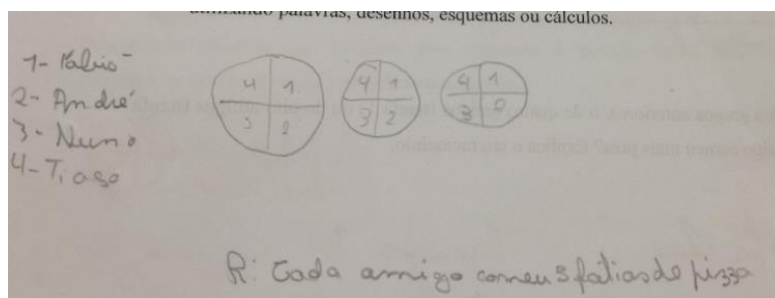 utilizando palavras, desenhos, esquemas ou cálculos.
1- Fábio
2- André
3- Nuno
4- Tiago
4 1
3 2
4 1
3 2
4 1
3 2
R: Cada amigo comeu 3 fatias de pizza